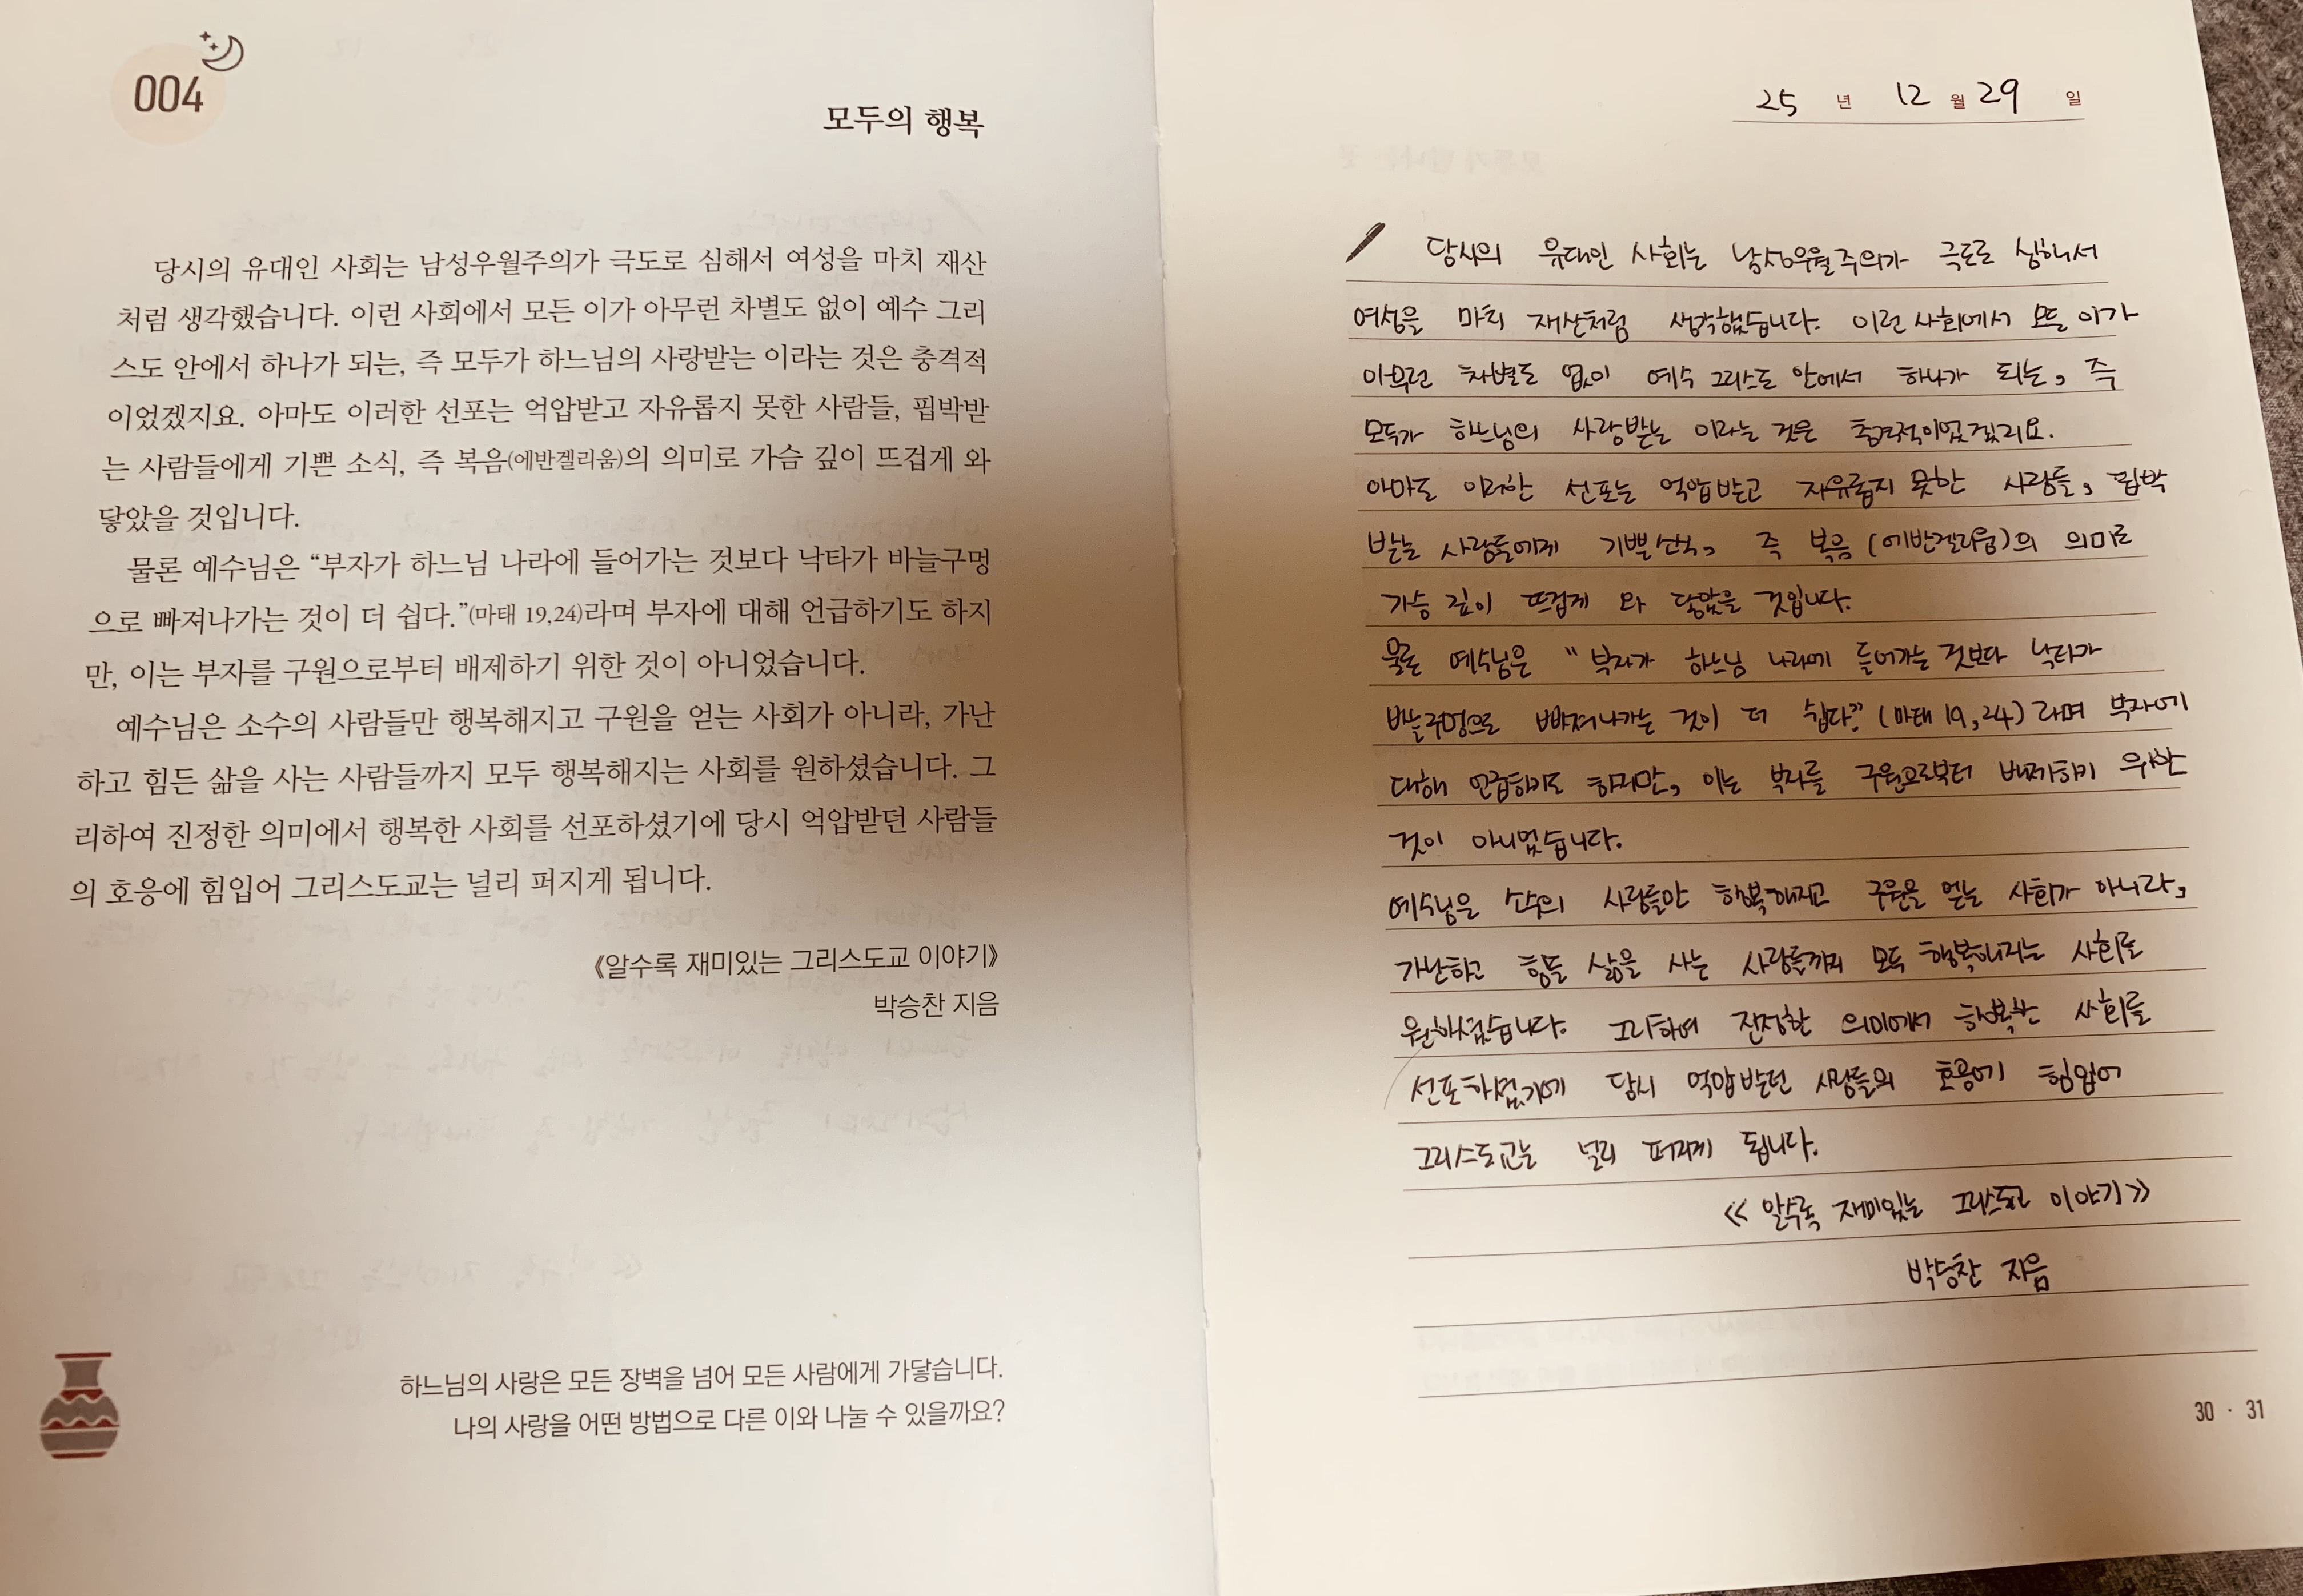 004
모두의 행복
당시의 유대인 사회는 남성우월주의가 극도로 심해서 여성을 마치 재산
처럼 생각했습니다. 이런 사회에서 모든 이가 아무런 차별도 없이 예수 그리
스도 안에서 하나가 되는, 즉 모두가 하느님의 사랑받는 이라는 것은 충격적
이었겠지요. 아마도 이러한 선포는 억압받고 자유롭지 못한 사람들, 핍박받
는 사람들에게 기쁜 소식, 즉 복음(에반겔리움)의 의미로 가슴 깊이 뜨겁게 와
닿았을 것입니다.
물론 예수님은 “부자가 하느님 나라에 들어가는 것보다 낙타가 바늘구멍
으로 빠져나가는 것이 더 쉽다.”(마태 19,24)라며 부자에 대해 언급하기도 하지
만, 이는 부자를 구원으로부터 배제하기 위한 것이 아니었습니다.
예수님은 소수의 사람들만 행복해지고 구원을 얻는 사회가 아니라, 가난
하고 힘든 삶을 사는 사람들까지 모두 행복해지는 사회를 원하셨습니다. 그
리하여 진정한 의미에서 행복한 사회를 선포하셨기에 당시 억압받던 사람들
의 호응에 힘입어 그리스도교는 널리 퍼지게 됩니다.
《알수록 재미있는 그리스도교 이야기》
박승찬 지음
하느님의 사랑은 모든 장벽을 넘어 모든 사람에게 가닿습니다.
나의 사랑을 어떤 방법으로 다른 이와 나눌 수 있을까요?
25 년 12 월 29 일
당시의 유대인 사회는 남성우월주의가 극도로 심해서
여성을 마치 재산처럼 생각했습니다. 이런 사회에서 모든 이가
아무런 차별도 없이 예수 그리스도 안에서 하나가 되는, 즉
모두가 하느님의 사랑받는 이라는 것은 충격적이었겠지요.
아마도 이러한 선포는 억압받고 자유롭지 못한 사람들, 핍박
받는 사람들에게 기쁜소식, 즉 복음(에반겔리움)의 의미로
가슴 깊이 뜨겁게 와 닿았을 것입니다.
물론 예수님은 “부자가 하느님 나라에 들어가는 것보다 낙타가
바늘구멍으로 빠져나가는 것이 더 쉽다.”(마태 19,24)라며 부자에
대해 언급하기도 하지만, 이는 부자를 구원으로부터 배제하기 위한
것이 아니었습니다.
예수님은 소수의 사람들만 행복해지고 구원을 얻는 사회가 아니라,
가난하고 힘든 삶을 사는 사람들까지 모두 행복해지는 사회를
원하셨습니다. 그리하여 진정한 의미에서 행복한 사회를
선포하셨기에 당시 억압받던 사람들의 호응에 힘입어
그리스도교는 널리 퍼지게 됩니다.
≪알수록 재미있는 그리스도교 이야기≫
박승찬 지음
30 · 31